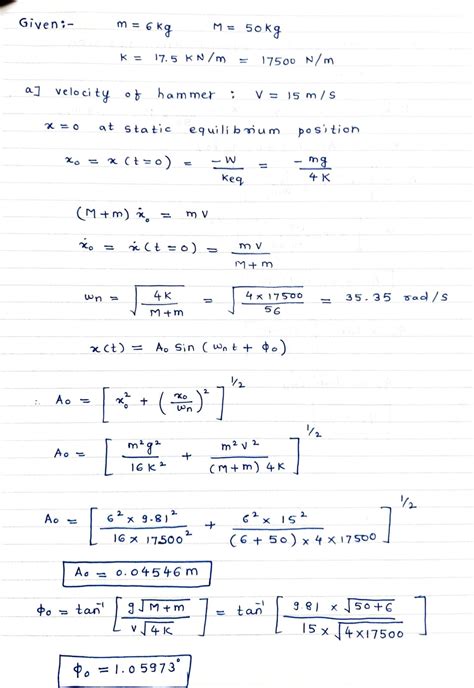 Given:- m = 6 kg M = 50 kg
K = 17.5 KN/m = 17500 N/m
a] velocity of hammer : V = 15 m/s
x=0 at static equilibrium position
x₀ = x (t=0) = -W/keq = -mg/4K
(M+m) ẋ₀ = mV
ẋ₀ = ẋ(t=0) = mV/M+m
ωn = √(4K/M+m) = √(4×17500/56) = 35.35 rad/s
x(t) = A₀ Sin (ωn t + ϕ₀)
∴ A₀ = [x₀² + (ẋ₀/ωn)²]^1/2
A₀ = [m²g²/16K² + m²V²/(M+m) 4K]^1/2
A₀ = [6² × 9.81²/16 × 17500² + 6² × 15²/(6+50) × 4 × 17500]^1/2
A₀ = 0.04546 m
ϕ₀ = tan⁻¹ [g√M+m/V√4K] = tan⁻¹ [9.81 × √50+6/15 × √4×17500]
ϕ₀ = 1.05973°